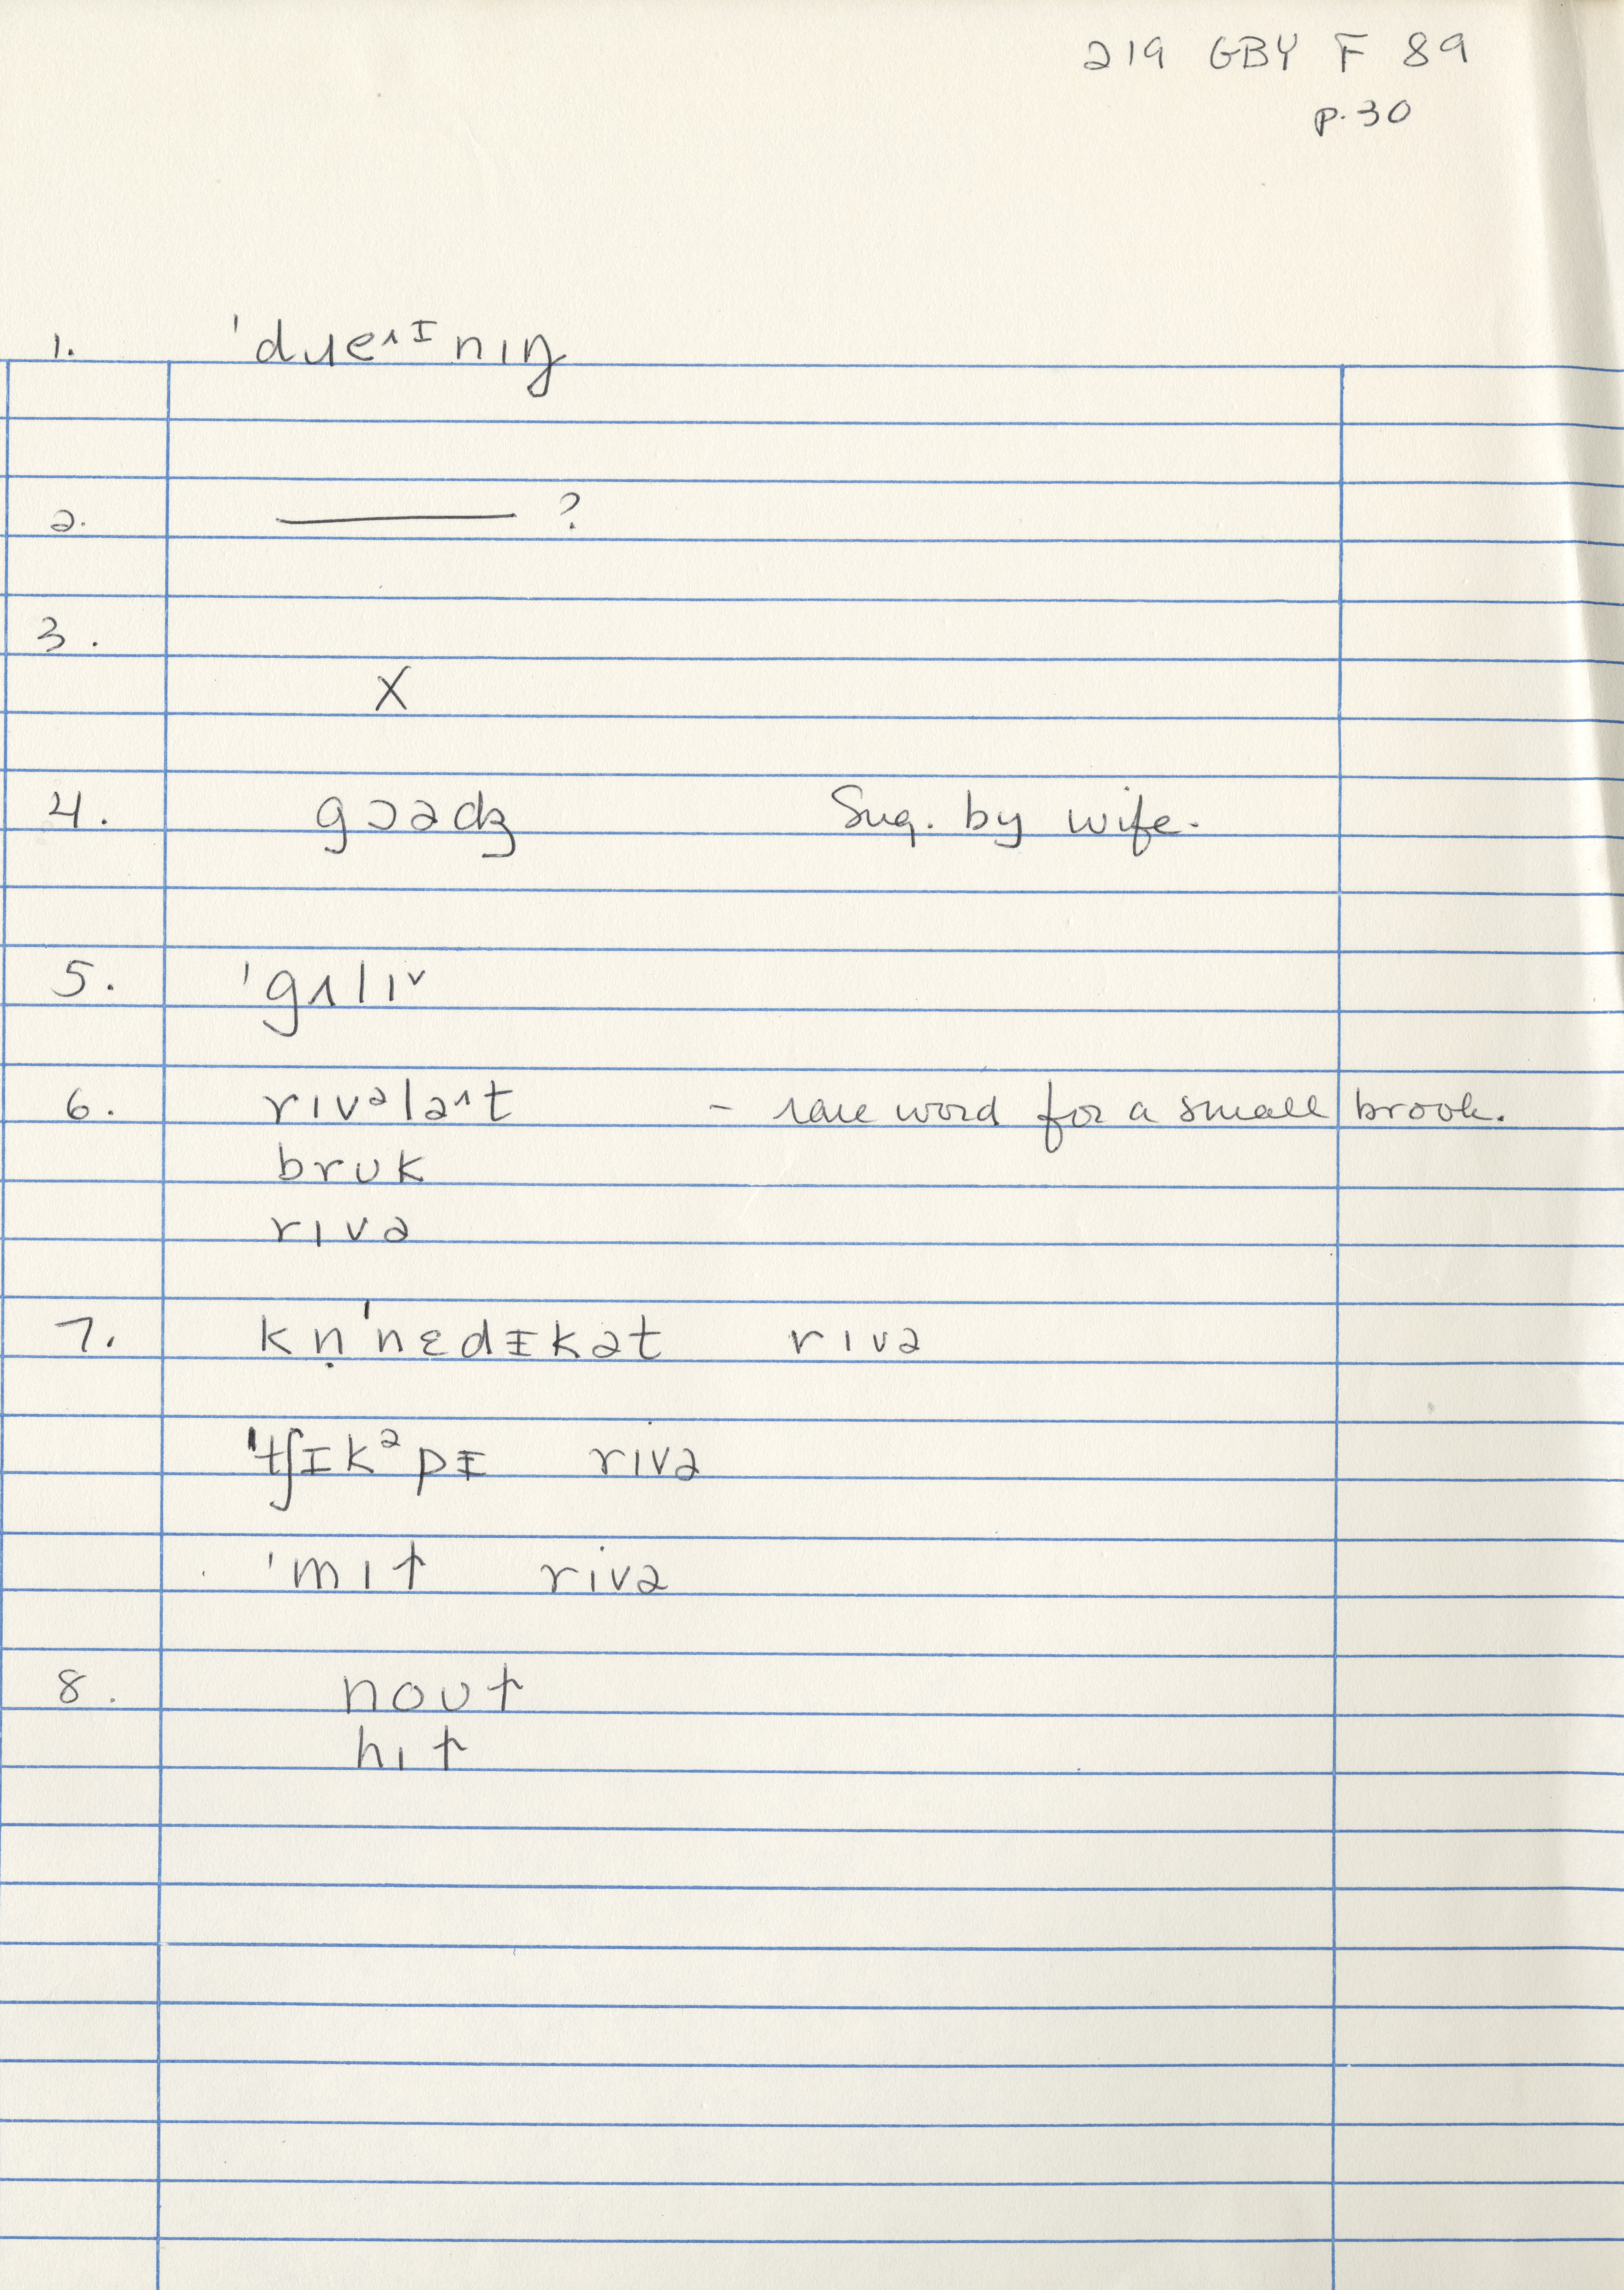 219 GBY F 89
p.30
1. 'dɹeᴧɪnɪŋ
2. ———— ?
3.
X
4. gɔədʒ Sug. by wife.
5. 'gʌlɪ˅
6. rɪvəlaᴧt – rare word for a small brook.
brʊk
rɪvə
7. kṇ'nɛdɪkət rɪvə
'tʃɪkᵊpɪ rɪvə
'mɪɫ rɪvə
8. noʊɫ
hɪɫ